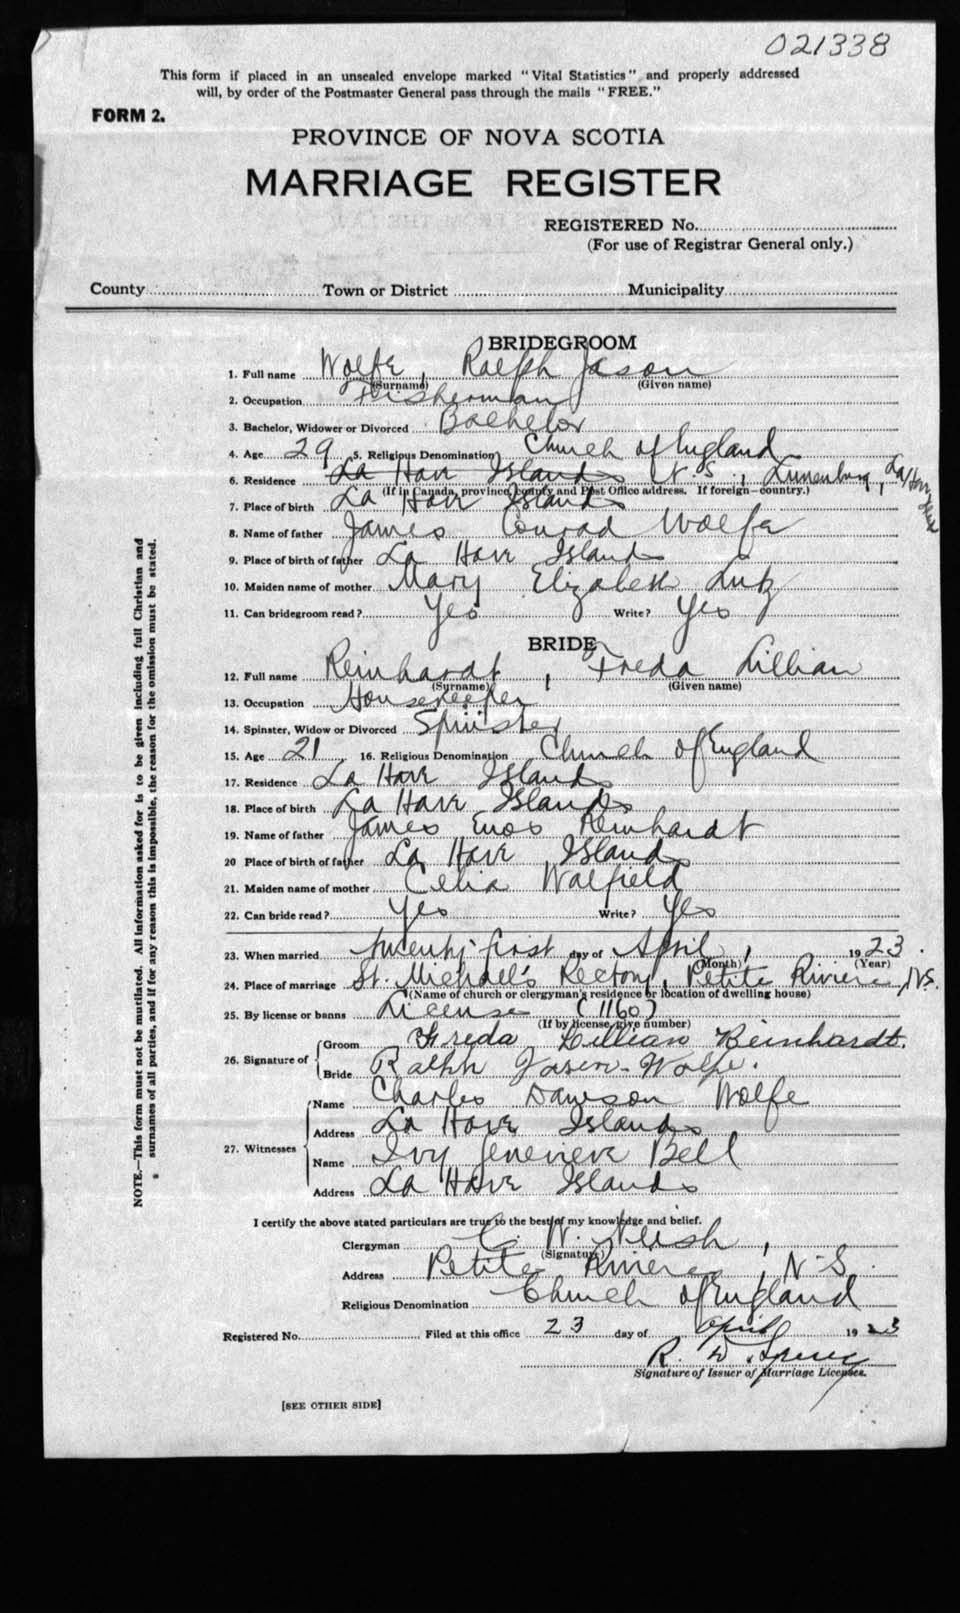 021338
This form if placed in an unsealed envelope marked "Vital Statistics" and properly addressed
will, by order of the Postmaster General pass through the mails "FREE."
FORM 2.
PROVINCE OF NOVA SCOTIA
MARRIAGE REGISTER
REGISTERED No.
(For use of Registrar General only.)
County Town or District Municipality
BRIDEGROOM
1. Full name Wolfe, Ralph Jason
(Surname) (Given name)
2. Occupation Fisherman
3. Bachelor, Widower or Divorced Bachelor
4. Age 29 5. Religious Denomination Church of England
6. Residence La Have Islands N.S., Lunenburg,
(If in Canada, province, county and Post Office address. If foreign—country.)
7. Place of birth La Have Islands
8. Name of father James Conrad Wolfe
9. Place of birth of father La Have Islands
10. Maiden name of mother Mary Elizabeth Lutz
11. Can bridegroom read? Yes Write? Yes
BRIDE
12. Full name Reinhardt, Freda Lillian
(Surname) (Given name)
13. Occupation Housekeeper
14. Spinster, Widow or Divorced Spinster
15. Age 21 16. Religious Denomination Church of England
17. Residence La Have Islands
18. Place of birth La Have Islands
19. Name of father James Enos Reinhardt
20 Place of birth of father La Have Islands
21. Maiden name of mother Celia Walfield
22. Can bride read? Yes Write? Yes
23. When married twenty-first day of April, 1923.
(Month) (Year)
24. Place of marriage St. Michael's Rectory, Petite Riviere, N.S.
(Name of church or clergyman's residence or location of dwelling house)
25. By license or banns License (1160)
(If by license, give number)
26. Signature of Groom Freda Lillian Reinhardt.
Bride Ralph Jason Wolfe.
27. Witnesses Name Charles Dawson Wolfe
Address La Have Islands
Name Ivy Genevieve Bell
Address La Have Islands
I certify the above stated particulars are true to the best of my knowledge and belief.
Clergyman C. W. Neish,
(Signature)
Address Petite Riviere, N.S.
Religious Denomination Church of England
Registered No. Filed at this office 23 day of April 1923
R. D.
Signature of Issuer of Marriage Licenses.
[SEE OTHER SIDE]
NOTE.—This form must not be mutilated. All information asked for is to be given including full Christian and
surnames of all parties, and if for any reason this is impossible, the reason for the omission must be stated.